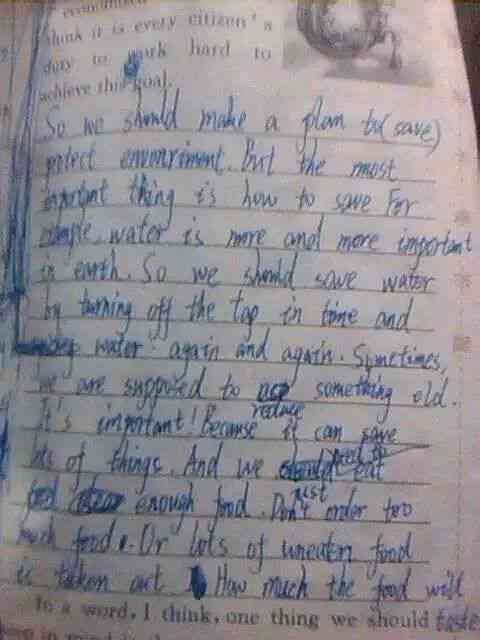 think it is every citizen's
duty to work hard to
achieve this goal.
So we should make a plan to (save)
protect environriment. But the most
important thing is how to save For
example, water is more and more important
in earth. So we should save water
by turning off the tap in time and
water again and again. Sometimes,
we are supposed to something old.
reduce
It's important! Because it can save
lots of things. And we need to eat
just
enough food. Don't order too
much food. Or lots of uneaten food
is taken out How much the food will
In a word, I think, one thing we should taste